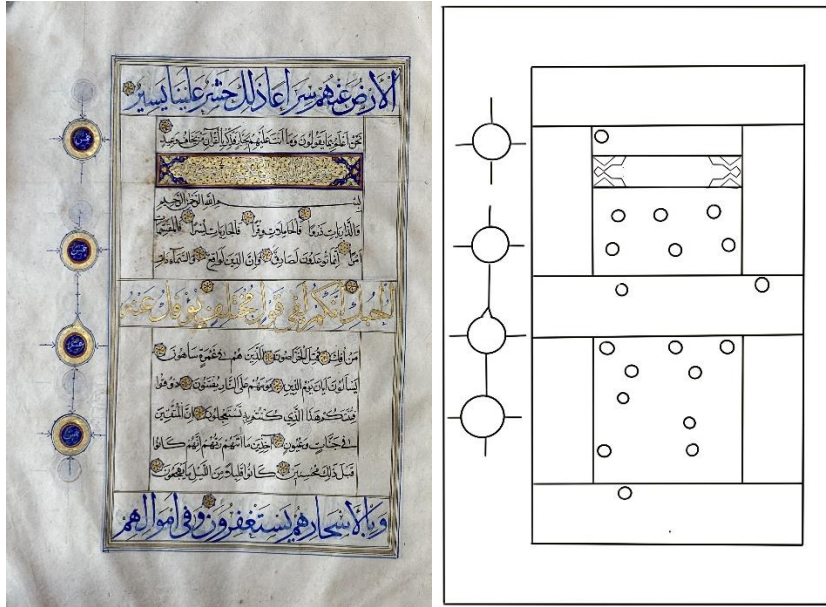 الأرض عنهم سراعا ذلك حشر علينا يسير
نحن أعلم بما يقولون وما أنت عليهم بجبار فذكر بالقرآن من يخاف وعيد
بسم الله الرحمن الرحيم
والذاريات ذروا فالحاملات وقرا فالجاريات يسرا فالمقسمات
أمرا إنما توعدون لصادق وإن الدين لواقع والسماء ذات
الحبك إنكم لفي قول مختلف يؤفك عنه
من أفك قتل الخراصون الذين هم في غمرة ساهون
يسألون أيان يوم الدين يوم هم على النار يفتنون ذوقوا
فتنتكم هذا الذي كنتم به تستعجلون إن المتقين
في جنات وعيون آخذين ما آتاهم ربهم إنهم كانوا
قبل ذلك محسنين كانوا قليلا من الليل ما يهجعون
وبالأسحار هم يستغفرون وفي أموالهم